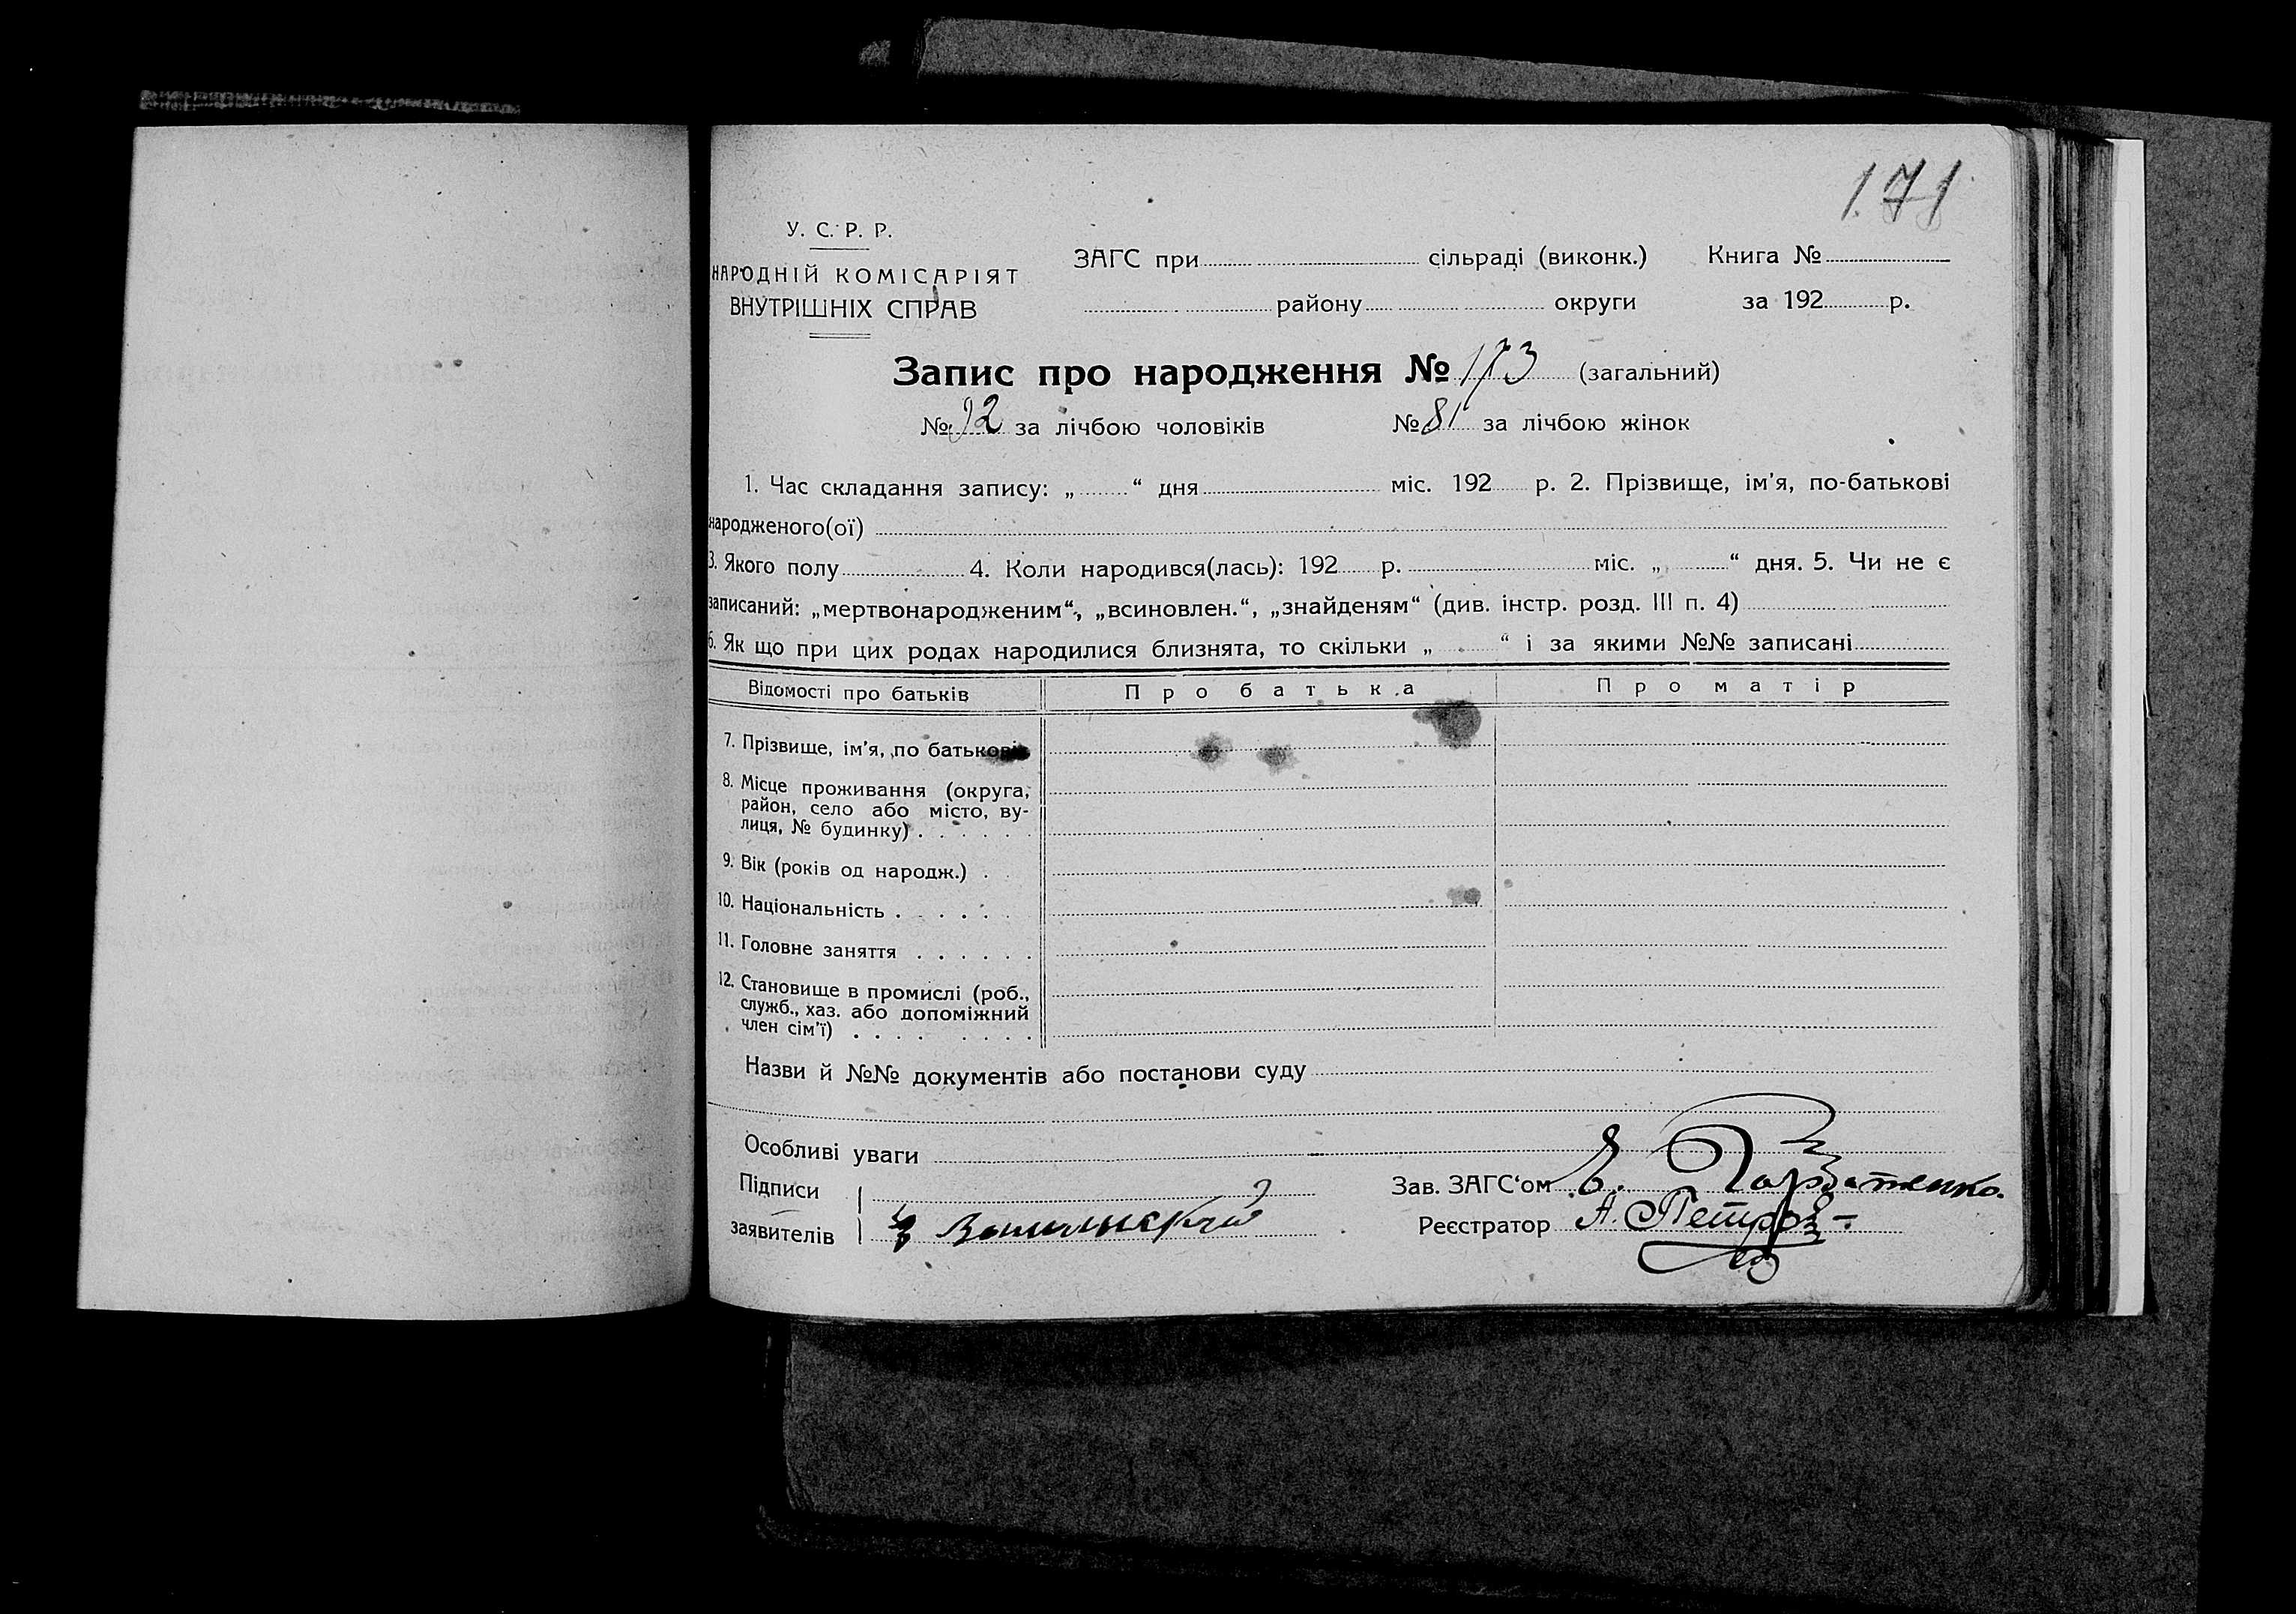 171
У. С. Р. Р.
НАРОДНІЙ КОМІСАРІЯТ
ВНУТРІШНІХ СПРАВ
ЗАГС при сільраді (виконк.) Книга №
району округи за 192 р.
Запис про народження № 173 (загальний)
№ 92 за лічбою чоловіків № 81 за лічбою жінок
1. Час складання запису: „ “ дня міс. 192 р. 2. Прізвище, ім’я, по-батькові
народженого(ої)
3. Якого полу 4. Коли народився(лась): 192 р. міс. „ “ дня. 5. Чи не є
записаний: „мертвонародженим“, „всиновлен.“, „знайденям“ (див. інстр. розд. III п. 4)
6. Як що при цих родах народилися близнята, то скільки „ “ і за якими №№ записані
Відомості про батьків Про батька Про матір
7. Прізвище, ім’я, по батькові
8. Місце проживання (округа,
район, село або місто, ву-
лиця, № будинку) . . . . . .
9. Вік (років од народж.) . .
10. Національність . . . . . .
11. Головне заняття . . . . . .
12. Становище в промислі (роб.,
служб., хаз. або допоміжний
член сім’ї) . . . . . . . .
Назви й №№ документів або постанови суду
Особливі уваги
Підписи
заявителів
Зав. ЗАГС‘ом
Реєстратор А. Петров